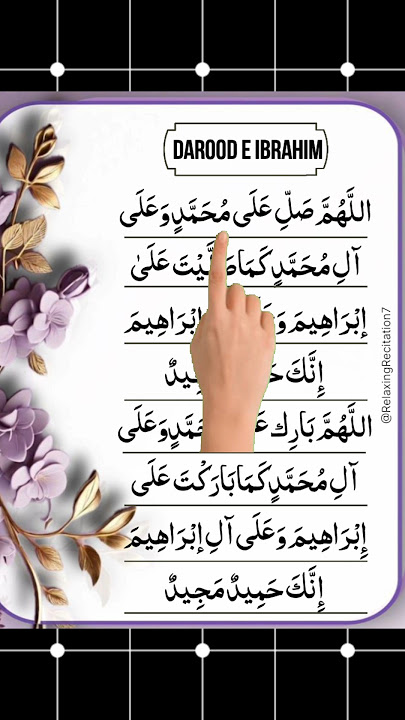 DAROOD E IBRAHIM
اللَّهُمَّ صَلِّ عَلَى مُحَمَّدٍ وَعَلَى
آلِ مُحَمَّدٍ كَمَا صَلَّيْتَ عَلَىٰ
إِبْرَاهِيمَ إِبْرَاهِيمَ
إِنَّكَ
اللَّهُمَّ بَارِك وَعَلَى
آلِ مُحَمَّدٍ كَمَا بَارَكْتَ عَلَى
إِبْرَاهِيمَ وَعَلَى آلِ إِبْرَاهِيمَ
إِنَّكَ حَمِيدٌ مَجِيدٌ
@RelaxingRecitation7